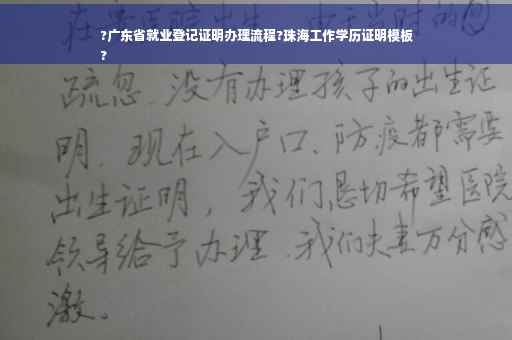 ?广东省就业登记证明办理流程?珠海工作学历证明模板
?
疏忽.没有办理孩子的出生证
明.现在入户口、防疫都需要
出生证明，我们恳切希望医院
领导给予办理.我们夫妻万分感
激。